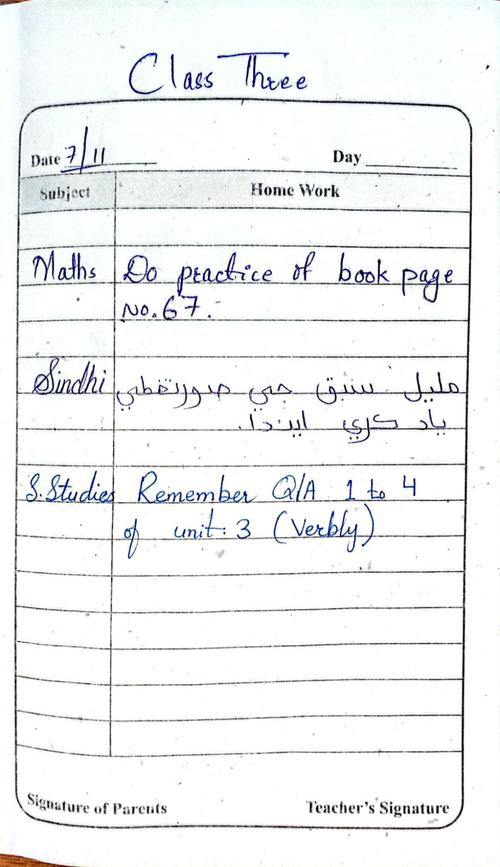 Class Three
Date 7/11 Day
Subject Home Work
Maths Do practice of book page
No. 67.
Sindhi مليل سبق جي صورتخطي
ياد ڪري ايندا.
S.Studies Remember Q/A 1 to 4
of unit: 3 (Verbly)
Signature of Parents Teacher's Signature